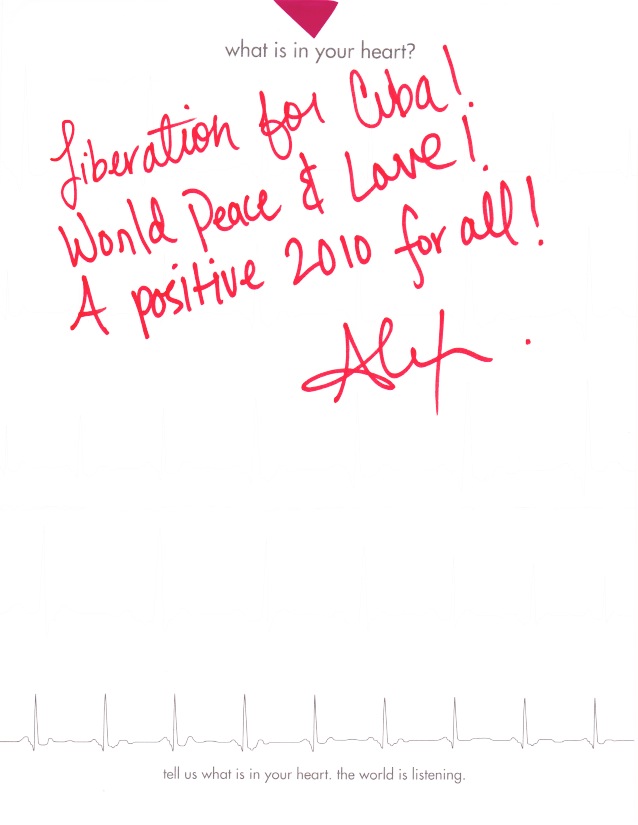 what is in your heart?
Liberation for Cuba!
World Peace & Love!
A positive 2010 for all!
Alex.
tell us what is in your heart. the world is listening.